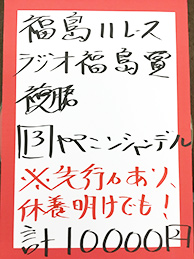 福島11レース
ラジオ福島賞
複勝
13 ヤマニンシャンデル
※先行力あり、
休養明けでも!
計10000円